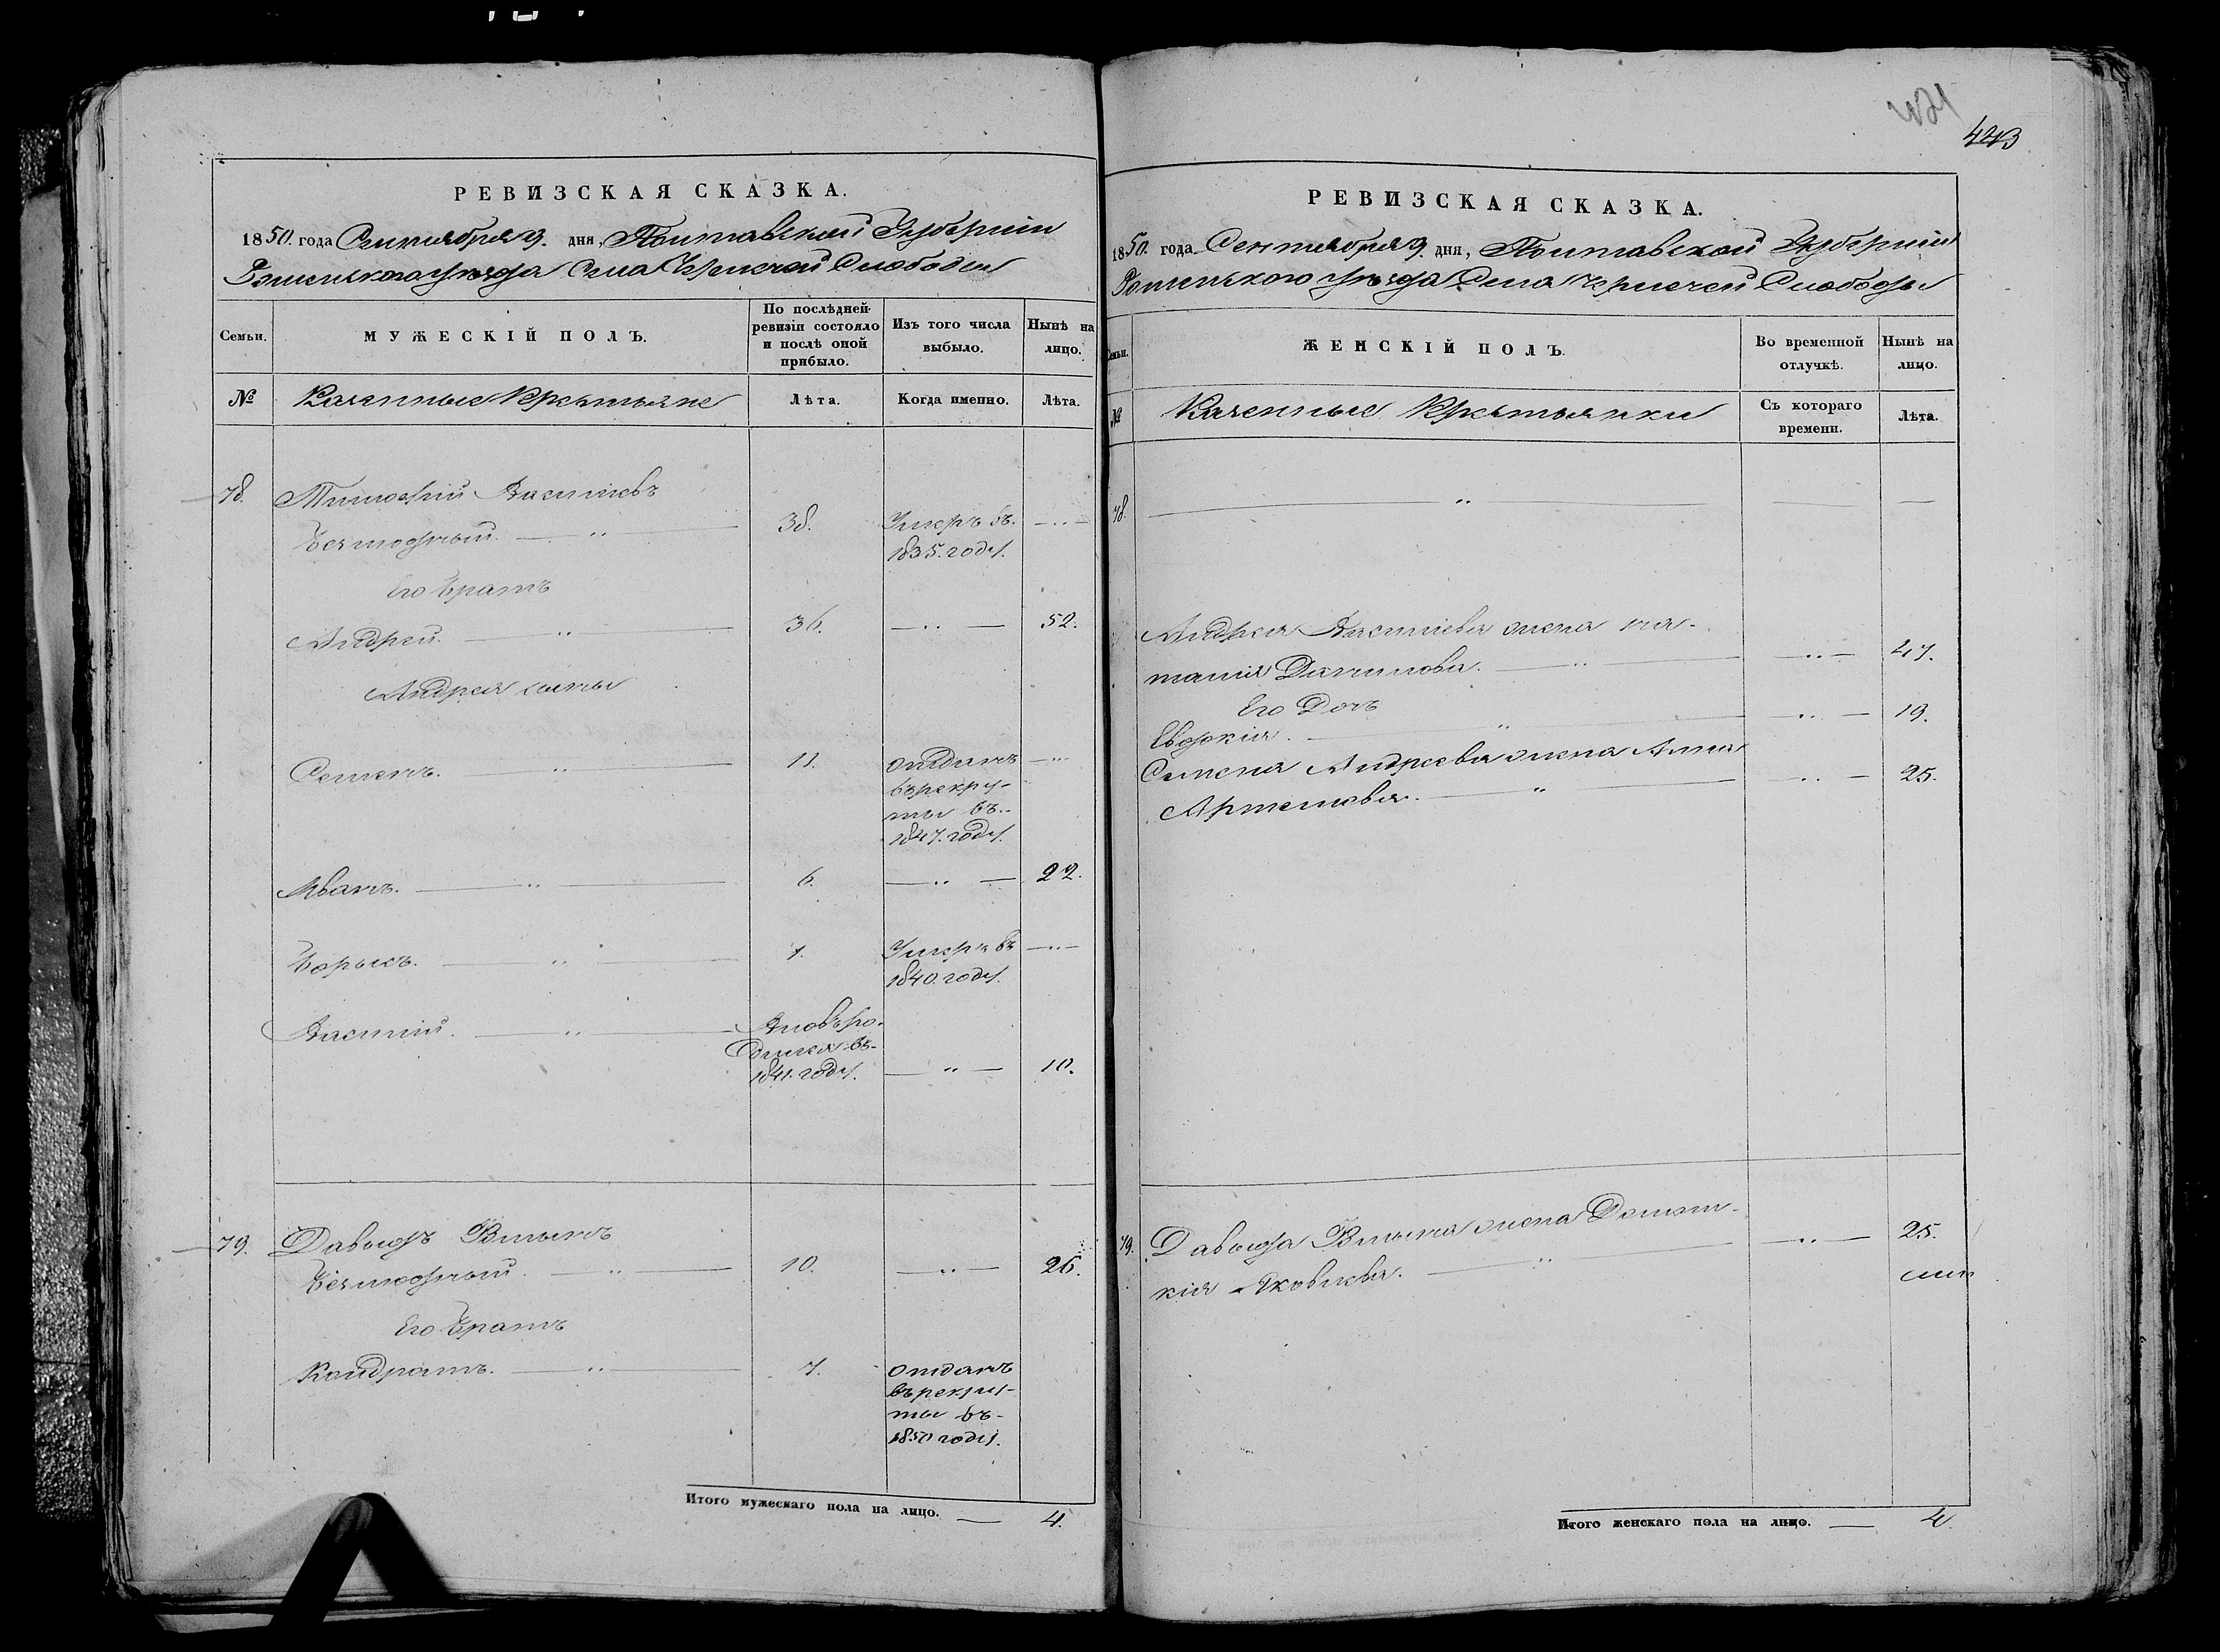 443
РЕВИЗСКАЯ СКАЗКА.
1850. года Сентября 9. дня, Полтавской Губернии
Роменского уѣзда Села Чернечей Слободы
Семьи.
МУЖЕСКІЙ ПОЛЪ.
По послѣдней
ревизіи состояло
и послѣ оной
прибыло.
Изъ того числа
выбыло.
Нынѣ на
лицо.
№
Казенные Крестьяне
Лѣта.
Когда именно.
Лѣта.
78. Тимофѣй Васильевъ
38. Умеръ въ
1835. году.
Его братъ
Андрей. 36. 52.
Андрея сыны
Семенъ. 11. отданъ
въ рекру-
ты въ
1847. году.
Иванъ. 6. 22.
Борысъ. 1. Умеръ въ
1840. году.
Василій. Вновь ро-
дился въ
1841. году. 10.
79. Давыдъ
10. 26.
Его братъ
Кондратъ. 7. отданъ
въ рекру-
ты въ
1850 году.
Итого мужескаго пола на лицо. 4.
РЕВИЗСКАЯ СКАЗКА.
1850. года Сентября 9. дня, Полтавской Губернии
Роменского уѣзда Села Чернечей Слободы
Семьи.
ЖЕНСКІЙ ПОЛЪ.
Во временной
отлучкѣ.
Нынѣ на
лицо.
№
Казенные Крестьянки
Съ котораго
времени.
Лѣта.
78.
Андрея Васильева жена На-
талия Данилова. 47.
Его Дочь
Евдокия. 19.
Семена Андреева жена Анна
Артемова. 25.
79. Давыда жена Домни-
кия Яковлева. 25.
Итого женскаго пола на лицо. 4.